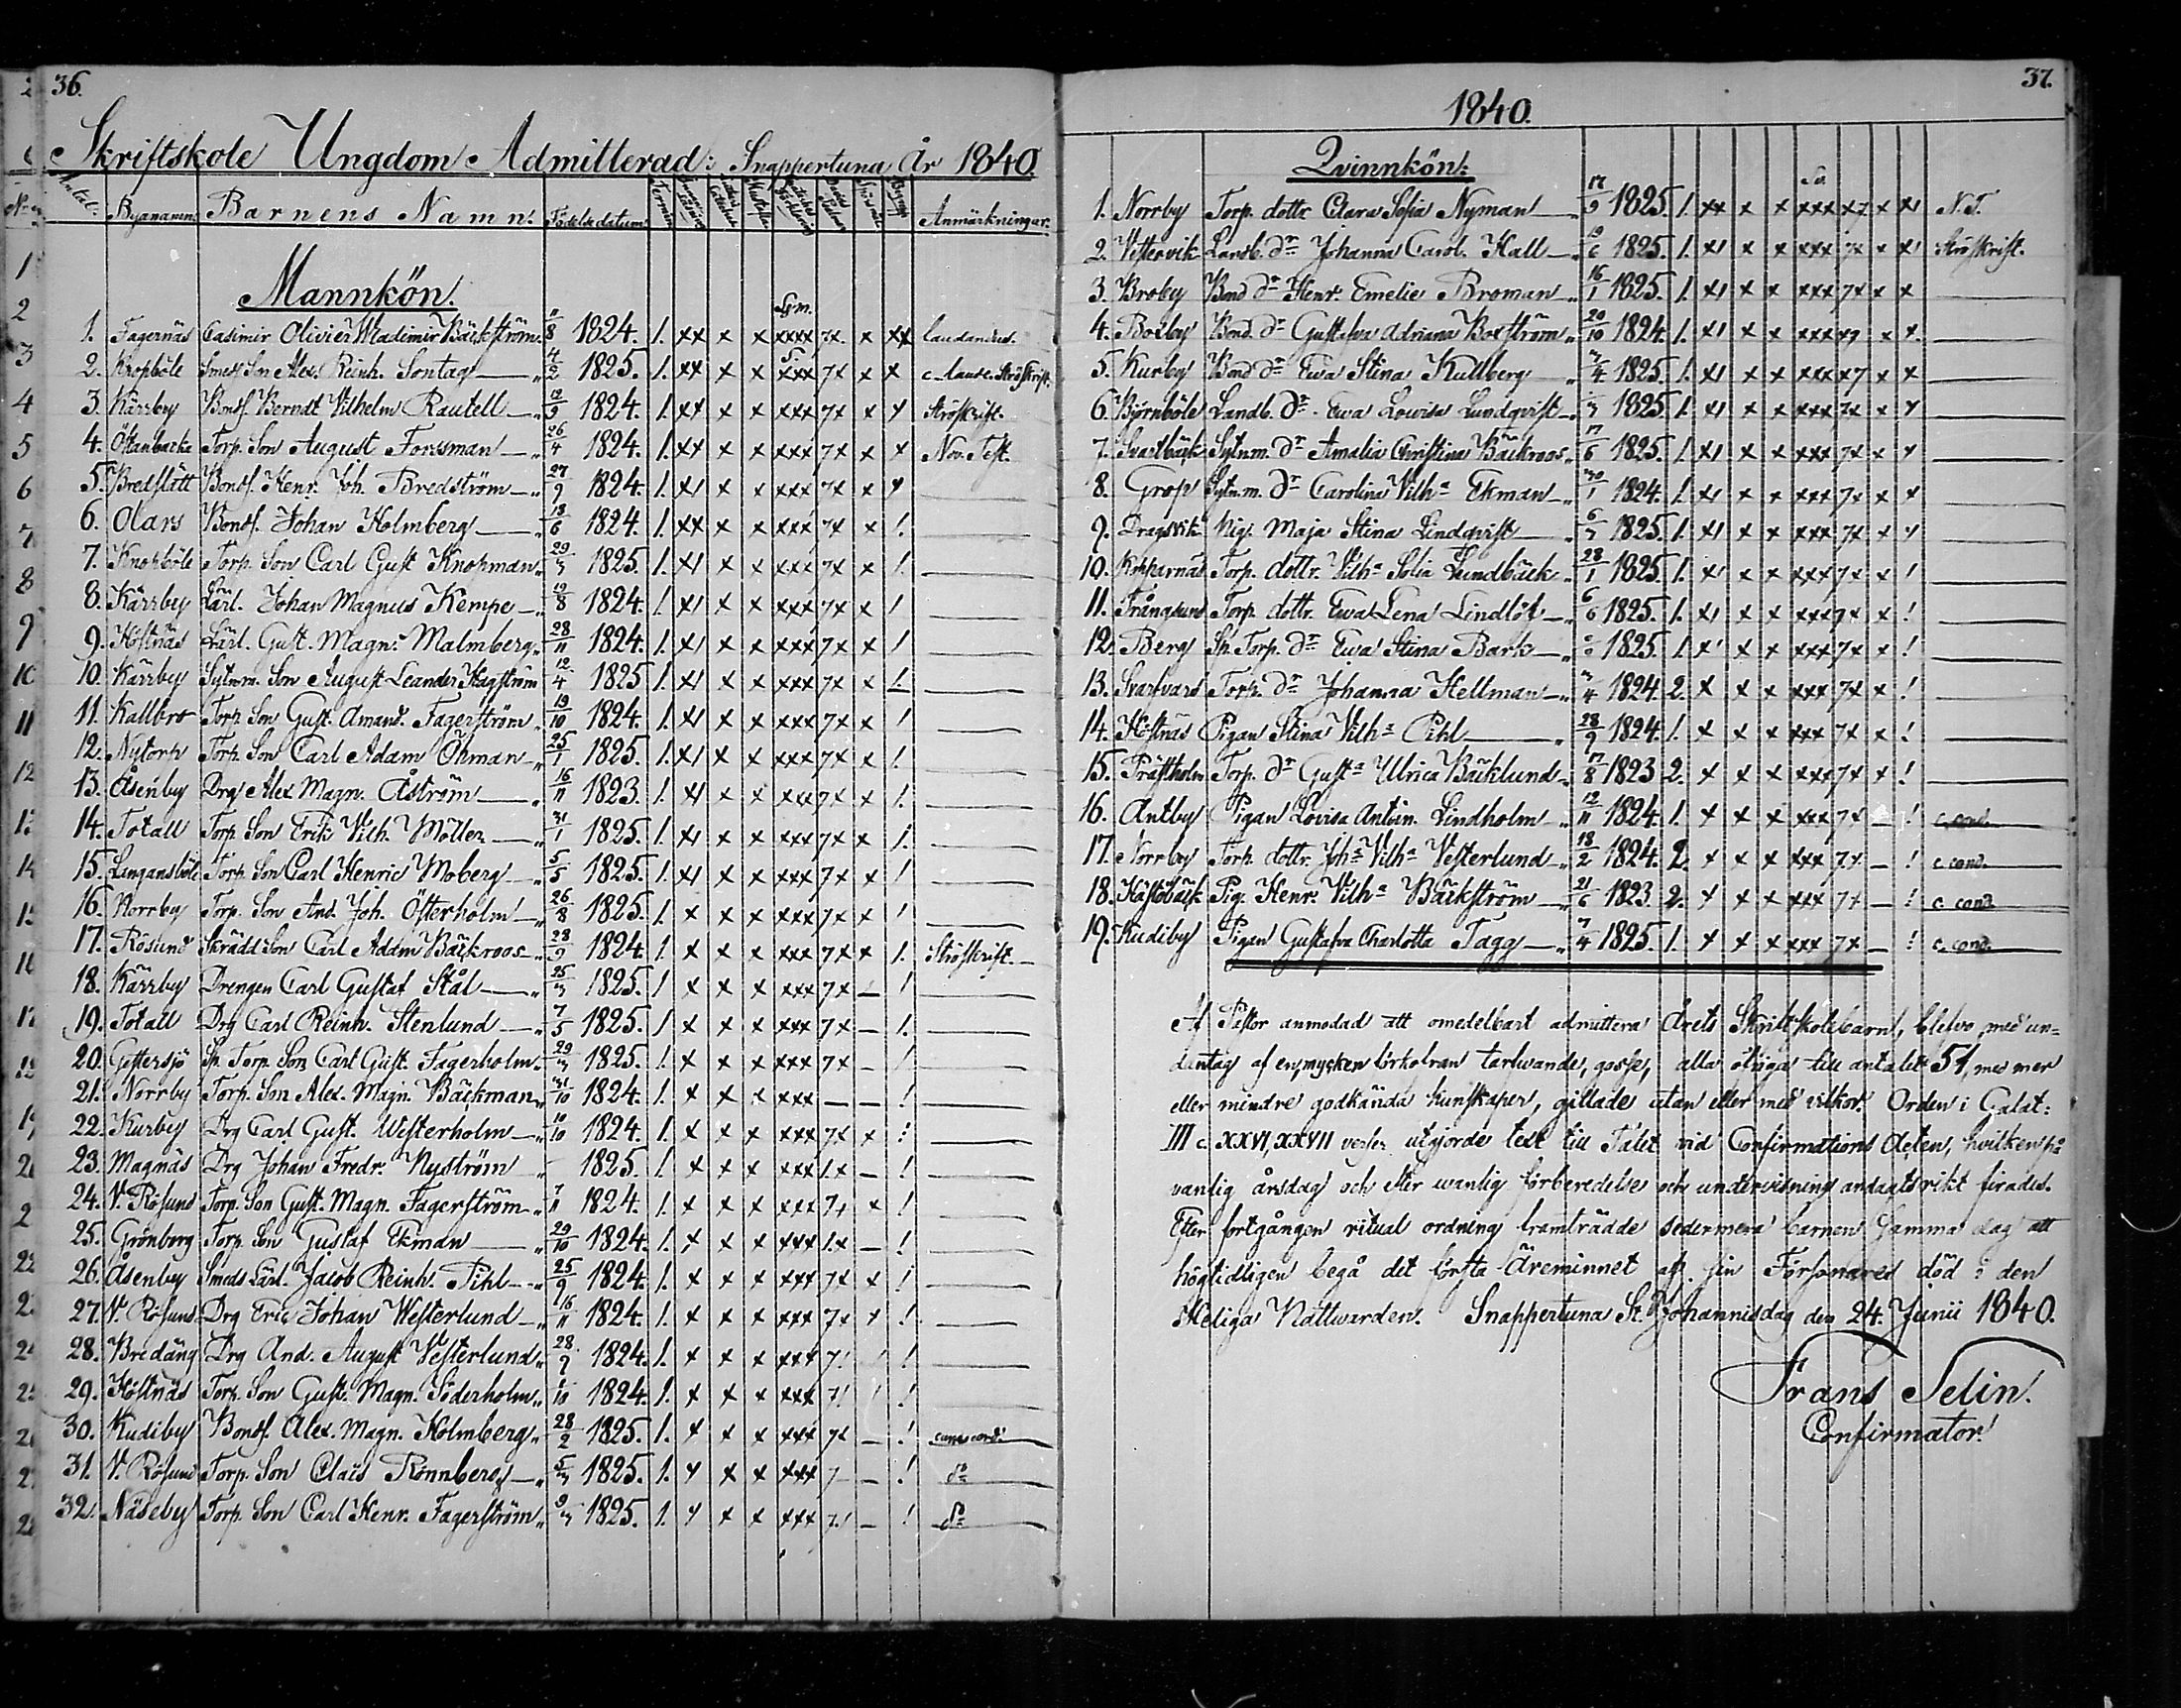 36.
Skriftskole Ungdom Admitterad: Snappertuna År 1840.
Antal: Byanamn: Barnens Namn: Födelsedatum: Anmärkningar.
Mannkön.
1. Fagernäs Casimir Olivier Wladimir Bäckström 11/8 1824. 1. xx x x xxxx 7x. x xx laudandus.
2. Knopböle Smeds Son Alex. Reinh. Sontag 4/2 1825. 1. xx x x xxx 7x x x c. laude. Ströskrift.
3. Kärrby Bonds. Berndt Vilhelm Rautell 1824. 1. xx x x xxx 7x x x Ströskrift.
4. Östanbacka Torp. Son August Forssman 26/4 1824. 1. xx x x xxx 7x x x Nov. Test.
5. Bredslätt Bonds. Henr. Joh. Bredström 27/9 1824. 1. x1 x x xxx 7x x x
6. Olars Bonds. Johan Holmberg 18/6 1824. 1. xx x x xxx 7x x !
7. Knopböle Torp. Son Carl Gust Knopman 29/3 1825. 1. x1 x x xxx 7x x !
8. Kärrby Lärl. Johan Magnus Kempe 19/8 1824. 1. x1 x x xxx 7x x !
9. Höstnäs Lärl. Gust. Magn. Malmberg 28/11 1824. 1. x1 x x xxx 7x x !
10. Kärrby Sytnm. Son August Leander Hagström 12/4 1825 1. x1 x x xxx 7x x !
11. Kallbro Torp. Son Gust. Amand. Fagerström 19/10 1824. 1. x1 x x xxx 7x x !
12. Nytorp Torp. Son Carl Adam Öhman 25/1 1825. 1. x1 x x xxx 7x x !
13. Åsenby Drg Alex Magn. Åström 16/11 1823. 1. x1 x x xxx 7x x !
14. Totall Torp. Son Erik Vilh. Möller 31/1 1825. 1. x1 x x xxx 7x x !
15. Langansböle Torp. Son Carl Henric Moberg 5/5 1825. 1. x1 x x xxx 7x x !
16. Norrby Torp. Son And. Joh. Österholm 26/8 1825. 1. x x x xxx 7x x !
17. Rösund Skrädd. Son Carl Adam Bäckroos 28/9 1824. 1. x x x xxx 7x x !. Ströskrift.
18. Kärrby Drengen Carl Gustaf Stål 25/3 1825. 1 x x x xxx 7x — !
19. Totall Drg Carl Reinh. Stenlund 7/5 1825. 1 x x x xxx 7x — !
20. Gettersjö Sp. Torp. Son Carl Gust. Fagerholm 29/3 1825. 1. x x x xxx 7x — !
21. Norrby Torp. Son Alex. Magn. Bäckman 31/10 1824. 1. x x x xxx — — !
22. Kurby Drg Carl Gust. Westerholm 10/10 1824. 1. x x x xxx 7x x !
23. Magnäs Drg Johan Fredr. Nyström 1825. 1. x x x xxx 1x — !
24. V. Rösund Torp. Son Gust. Magn. Fagerström 7/11 1824. 1. x x x xxx 7x x !
25. Grönberg Torp. Son Gustaf Ekman 29/10 1824. 1. x x x xxx 1.x — !
26. Åsenby Smeds Lärl. Jacob Reinh. Pihl 25/9 1824. 1. x x x xxx 7x x !
27. V. Rösund Drg Eric Johan Westerlund 16/11 1824. 1. x x x xxx 7x x !
28. Bredäng Drg And. August Westerlund 28/9 1824. 1. x x x xxx 7! ! !
29. Höstnäs Torp. Son Gust. Magn. Söderholm 1/10 1824. 1. x x x xxx 7! ! !
30. Kudiby Bonds. Alex. Magn. Holmberg 28/2 1825. 1. x x x xxx 7x — ! cum cond:
31. V. Rösund Torp. Son Clas Rönnberg 5/3 1825. 1. x x x xxx 7 — ! do
32. Näseby Torp. Son Carl Henr. Fagerström 9/3 1825. 1. x x x xxx 7! — ! do
37.
1840.
Qvinnkön:
1. Norrby Torp. dottr Clara Sofia Nyman 17/9 1825. 1. xx x x xxx x7 x x1 N. T.
2. Vestervik Landb. dr Johanna Carol. Hall 1825. 1. x1 x x xxx 7x x x1 Ströskrift.
3. Broby Bond dr Henr. Emelie Broman 16/1 1825. 1. x1 x x xxx 7x x x
4. Boxby Bond. dr Gustafva Adriana Boxström 20/10 1824. 1. x1 x x xxx x7 x x
5. Kurby Bond dr Ewa Stina Kullberg 3/4 1825. 1. x1 x x xxx x7 x x
6. Björnböle Landb. dr Ewa Lowisa Lundqvist 1825. 1. x1 x x xxx 7x x x
7. Svartbäck Sytnm. dr Amalia Christina Bäckroos 17/6 1825. 1. x1 x x xxx 7x x x
8. Grop Sytnm. dr Carolina Vilha Ekman 30/1 1824. 1. x1 x x xxx 7x x x
9. Dragsvik Pig. Maja Stina Lindqvist 6/3 1825. 1. x1 x x xxx 7x x x
10. Kopparnäs Torp. dottr. Vilha Sofia Lundbäck 28/1 1825. 1. x1 x x xxx 7x x !
11. Trångsund Torp. dottr. Ewa Lena Lindlöf 6/6 1825. 1. x1 x x xxx 7x x !
12. Berg Sp. Torp. dr Ewa Stina Bark 1825. 1. x1 x x xxx 7x x !
13. Svarfvars Torp. dr Johanna Hellman 3/4 1824. 2. x x x xxx 7x x !
14. Höstnäs Pigan Stina Vilha Pihl 28/9 1824. 1. x x x xxx 7x x !
15. Prästholm Torp. dr Gusta Ulrica Bäcklund 17/8 1823 2. x x x xxx 7x x !
16. Antby Pigan Lovisa Antoin. Lindholm 12/11 1824. 1. x x x xxx 7x — ! c. cond.
17. Norrby Torp. dottr. Joha Vilha Vesterlund 18/2 1824. 2. x x x xxx 7x — ! c cond.
18. Höstöbäck Pig. Henr. Vilha Bäckström 21/6 1823. 2. x x x xxx 7x — ! c cond.
19. Kudiby Pigan Gustafva Charlotta Tagg 7/4 1825. 1. x x x xxx 7x — ! c. cond.
Af Pastor anmodad att omedelbart admittera årets Skriftskolebarn, blefvo, med un=
dantag af en, mycken förkofran tarfwande, gosse, alla öfriga till antalet 51, med mer
eller mindre godkända kunskaper, gillade utan eller med vilkor. Orden i Galat:
III c. XXVI, XXVII verser utgjorde text till Talet vid Confirmations Acten, hvilken på
vanlig årsdag och efter wanlig förberedelse och undervisning andagtsrikt firades.
Efter fortgången ritual ordning framträdde sedermera barnen samma dag att
högtidligen begå det första Äreminnet af sin Försonares död i den
Heliga Nattwarden. Snappertuna St. Johannisdag den 24. Junii 1840.
Frans Selin.
Confirmator.